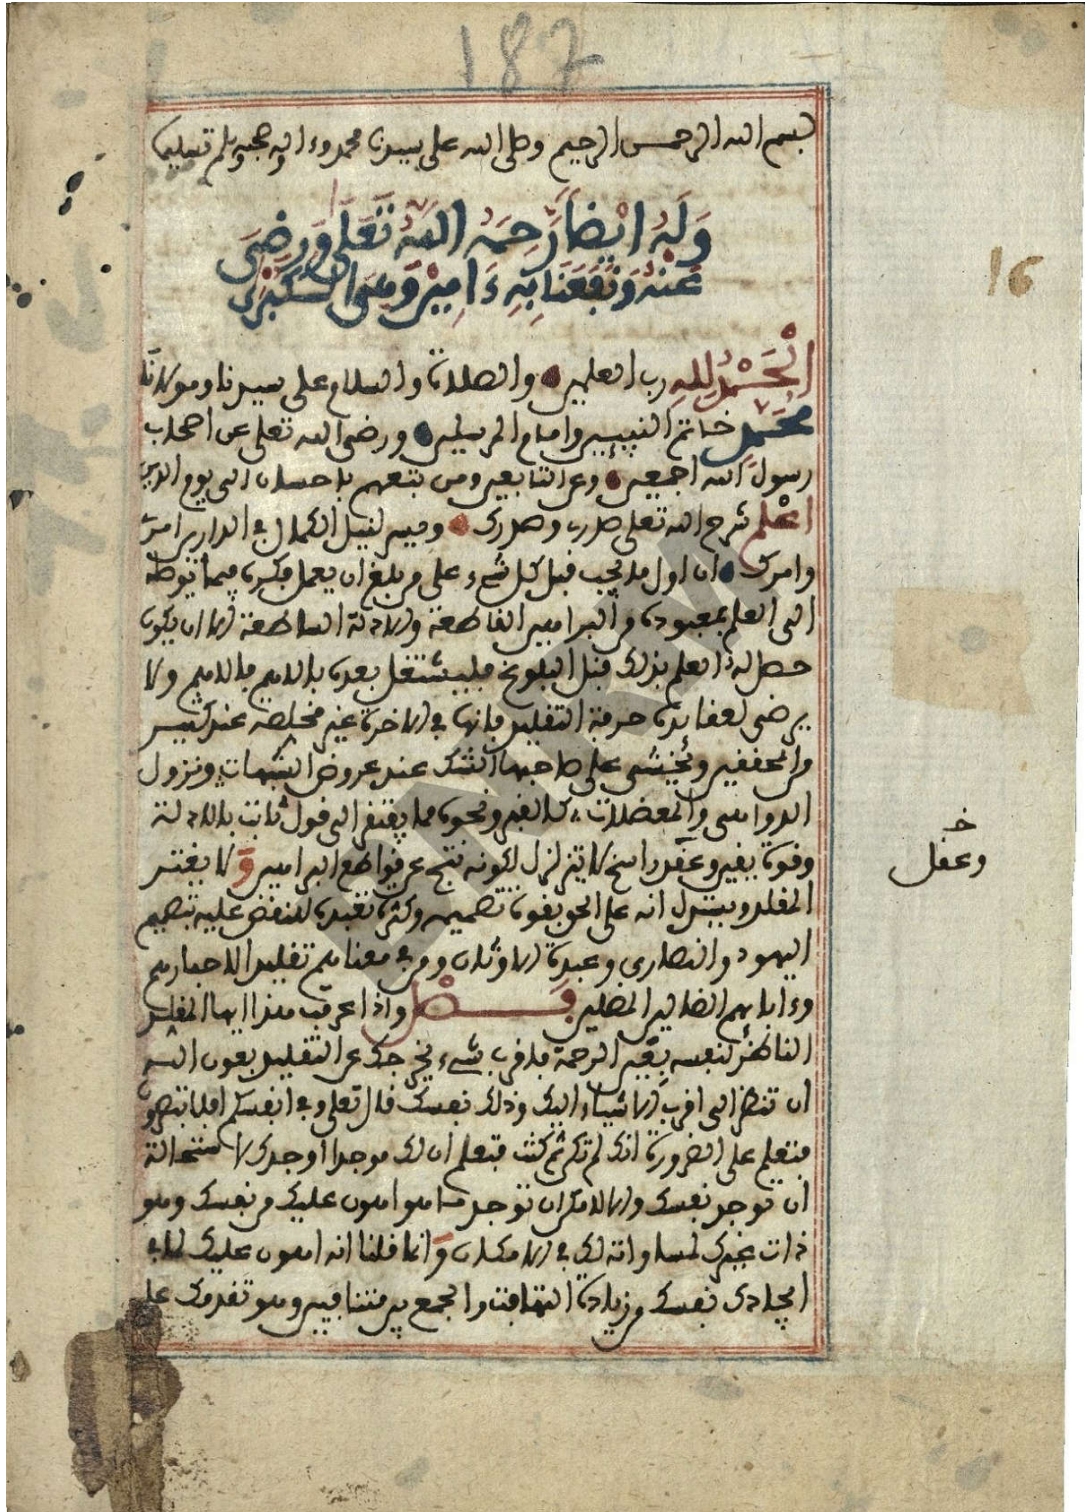 187
بسم الله الرحمن الرحيم وصلى الله على سيدنا محمد وءاله وصحبه وسلم تسليما
وَلَهُ ايْضاً رَحِمَهُ اللهُ تَعَلَى وَرَضِيَ
عَنْهُ وَنَفَعَنَا بِهِ ءَامِيْنَ وَهِىَ الْكُبْرَى
16
الْحَمْدُ لِلهِ رب العلمين والصلاة والسلام على سيدنا ومولانا
مُحَمَّدٍ خاتم النبيين وامام المرسلين ورضى الله تعلى عن اصحاب
رسول الله اجمعين وعن التابعين ومن تبعهم باحسان الى يوم الدين
اعْلَمْ شرح الله تعلى صدرى وصدرك ويسر لنيل الكمال في الدارين امرى
وامرك ان اول ما يجب قبل كل شىء على من بلغ ان يعمل فكره فيما يوصله
الى العلم بمعبوده من البراهين القاطعة والادلة الساطعة الا ان يكون
حصل له العلم بذلك قبل البلوغ فليشتغل بعده بالاهم فالاهم ولا
يرضى لعقائده حرفة التقليد فانها في الاخرة غير مخلصة عند كثير
من المحققين ويخشى على صاحبها الشك عند عروض الشبهات ونزول
الدواهى والمعضلات كالقبر ونحوه مما يفتقر الى قول ثابت بالادلة
وقوة يقين وعقد راسخ لا يتزلزل لكونه نتج عن قواطع البراهين وَلا يغتر
خـ
وعقل
المقلد ويستدل انه على الحق بقوة تصميمه وكثرة تعبده للنقض عليه بتصميم
اليهود والنصارى وعبدة الاوثان ومن في معناهم تقليدا لاحبارهم
وءابايهم الضالين المضلين فَـــصْل واذا عرفت هذا ايها المقلد
الناظر لنفسه بعين الرحمة فاقرب شىء يخرجك عن التقليد بعون الله
ان تنظر الى اقرب الاشياء اليك وذلك نفسك قال تعلى وفي انفسكم افلا تبصرون
فتعلم على الضرورة انك لم تكن ثم كنت فتعلم ان لك موجدا اوجدك لاستحالة
ان توجد نفسك والا لامكن ان توجد ما هو اهون عليك من نفسك وهو
ذات غيرك لمساواته لك في الامكان وَانما قلنا انه اهون عليك لما في
ايجادك نفسك من زيادة التهافت والجمع بين متنافيين وهو تقدمك على